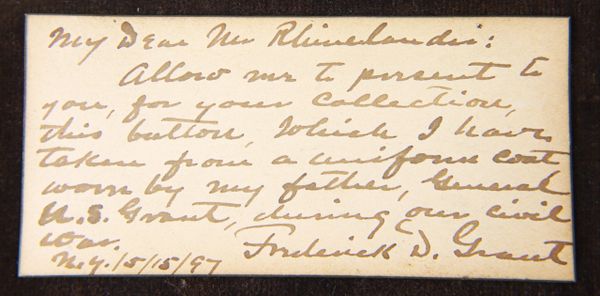 My Dear Mr Rhinelander:
Allow me to present to
you, for your collection,
this button, which I have
taken from a uniform coat
worn by my father, General
U.S. Grant, during our civil
war.
Frederick D. Grant
N.Y. /5/15/97